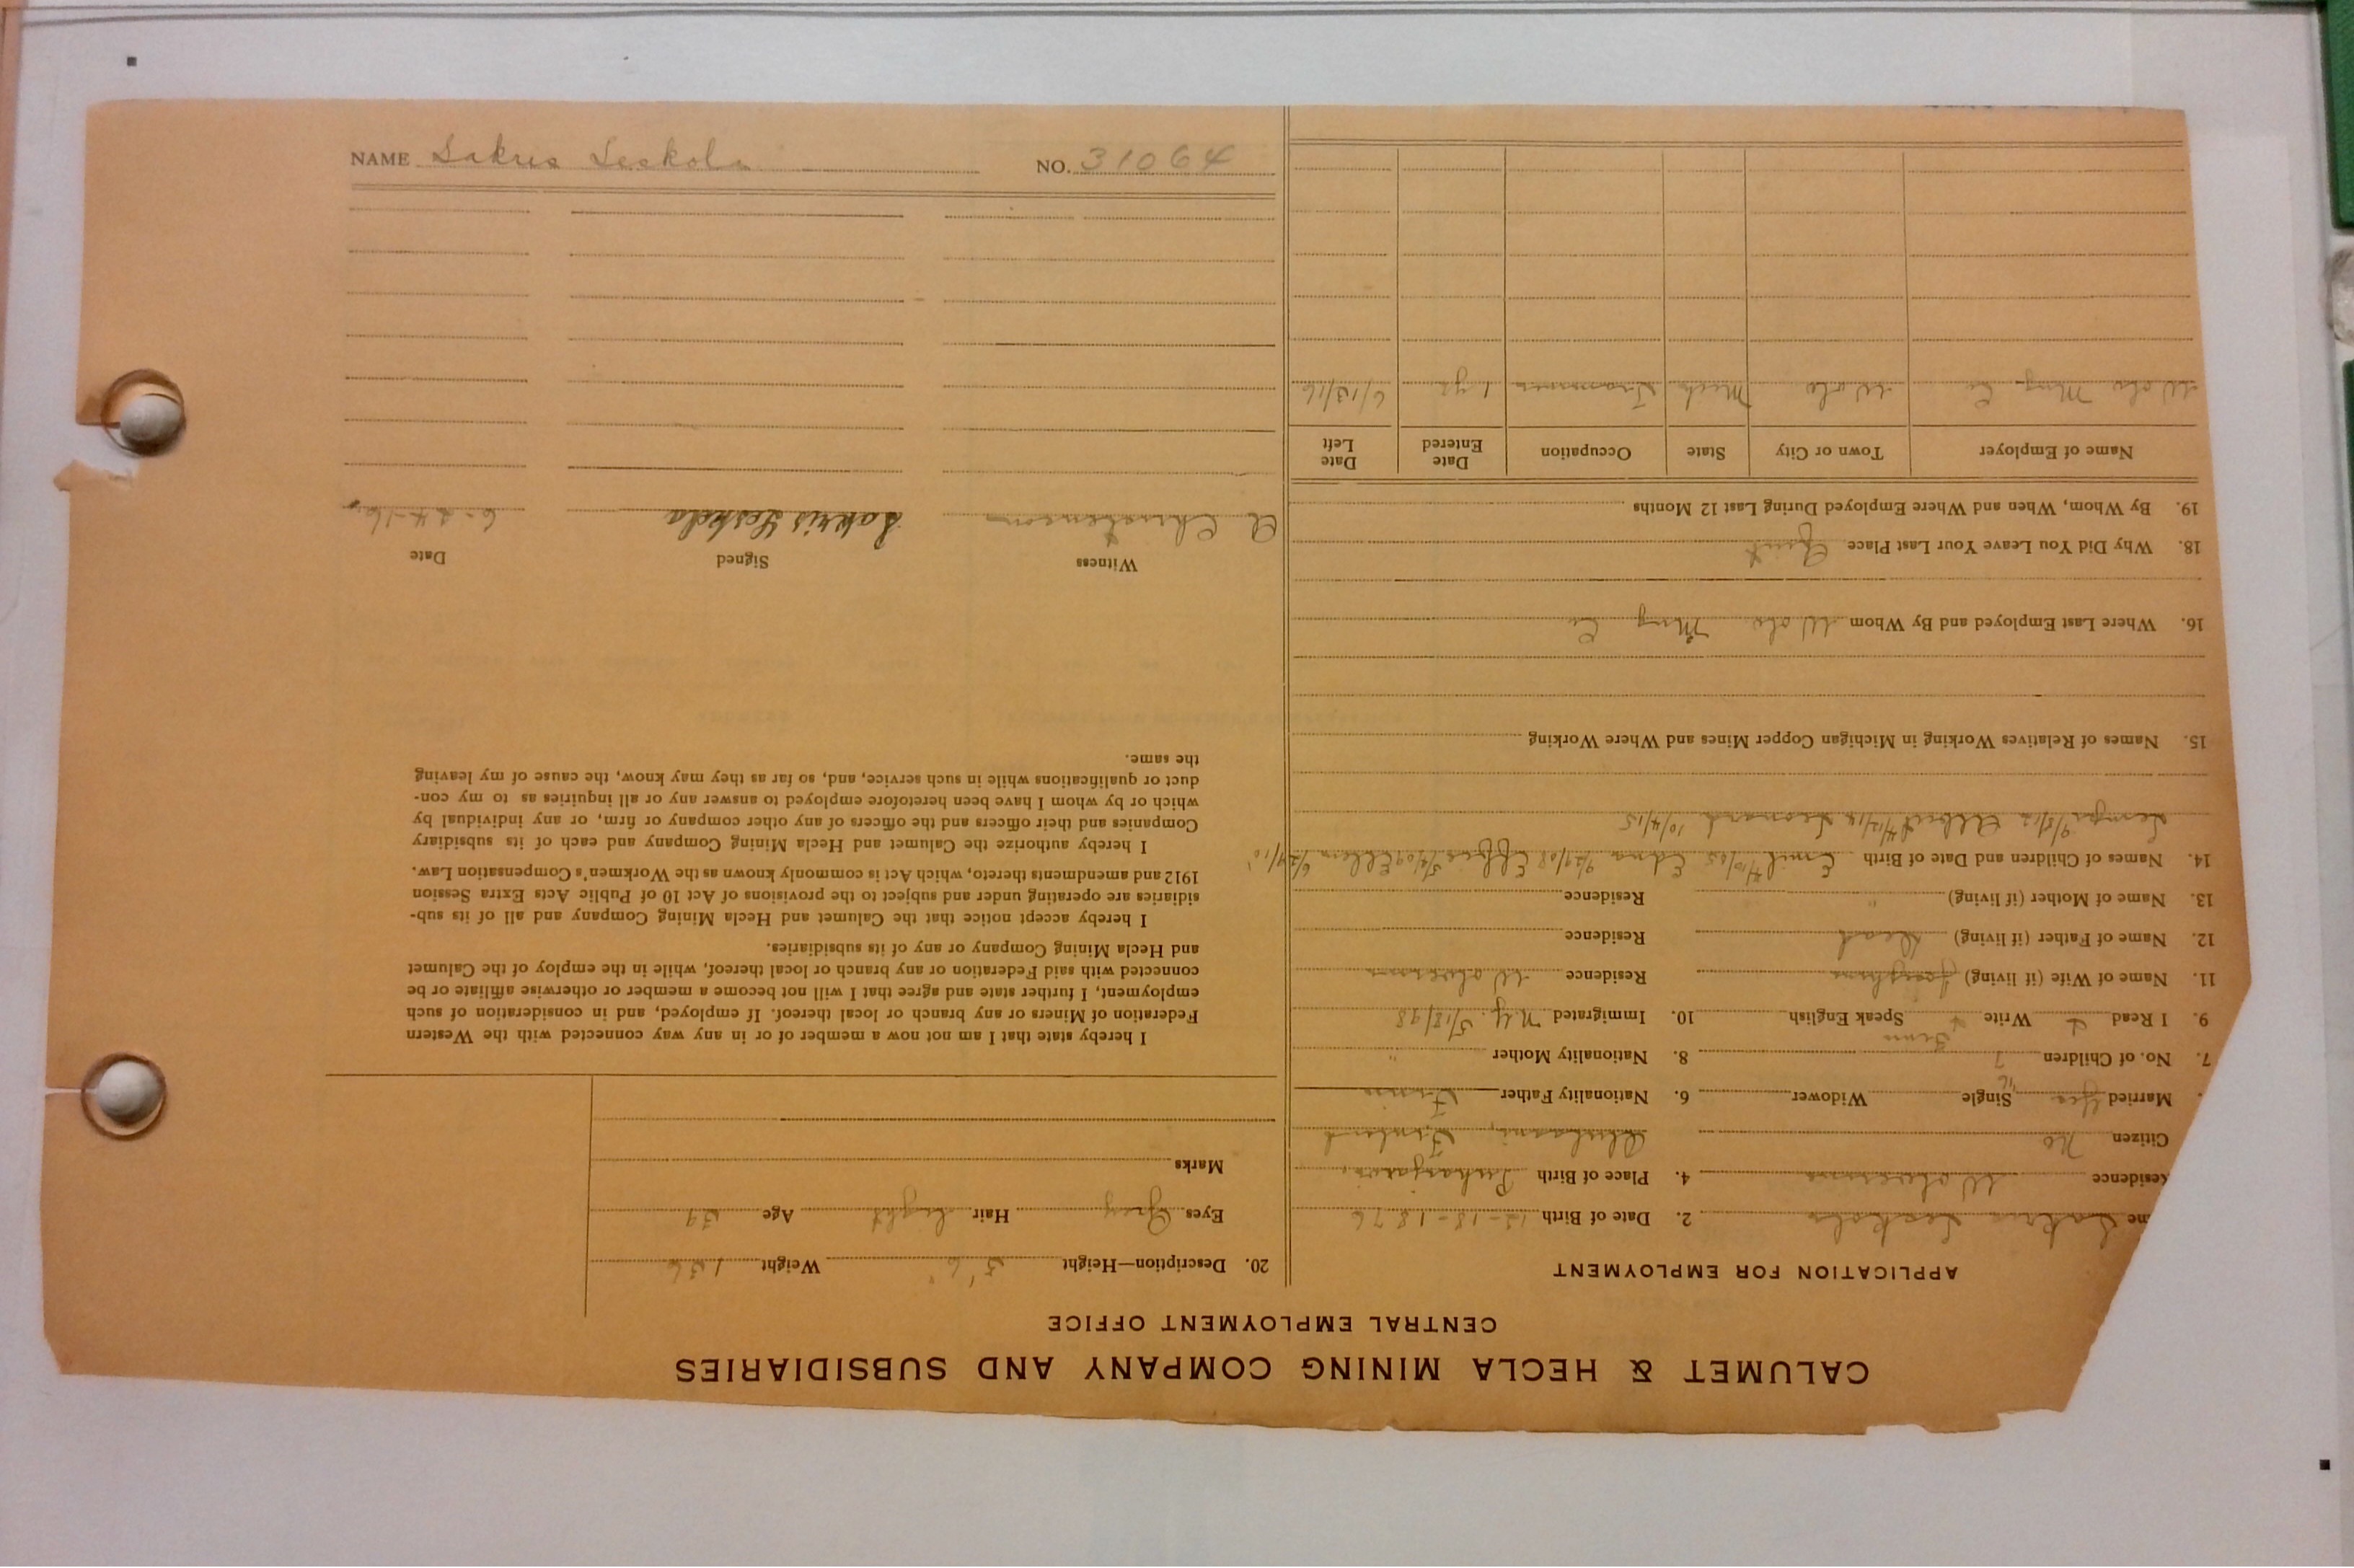 CALUMET & HECLA MINING COMPANY AND SUBSIDIARIES
CENTRAL EMPLOYMENT OFFICE
APPLICATION FOR EMPLOYMENT
me Sakris Leskela 2. Date of Birth 12-18-1876
Residence Wolverine 4. Place of Birth
Citizen No Finland
Married Yes Single Widower 6. Nationality Father Finn
7. No. of Children 7 8. Nationality Mother "
9. I Read Write Speak English 10. Immigrated N.Y. 5/18/98
Finn
11. Name of Wife (if living) Residence Wolverine
12. Name of Father (if living) Dead Residence
13. Name of Mother (if living) " Residence
14. Names of Children and Date of Birth Emil Edna 9/29/08 Effie 5/4/09 Ellen 6/29/10
9/5/12 Albert 4/12/14 Leonard 10/4/15
15. Names of Relatives Working in Michigan Copper Mines and Where Working
16. Where Last Employed and By Whom Wolv Mng Co
18. Why Did You Leave Your Last Place Quit
19. By Whom, When and Where Employed During Last 12 Months
Name of Employer Town or City State Occupation Date Entered Date Left
Wolv Mng Co Wolv Mich Trammer 1 yr 6/13/16
20. Description—Height 5'6" Weight 136
Eyes Grey Hair Light Age 39
Marks
I hereby state that I am not now a member of or in any way connected with the Western
Federation of Miners or any branch or local thereof. If employed, and in consideration of such
employment, I further state and agree that I will not become a member or otherwise affiliate or be
connected with said Federation or any branch or local thereof, while in the employ of the Calumet
and Hecla Mining Company or any of its subsidiaries.
I hereby accept notice that the Calumet and Hecla Mining Company and all of its sub-
sidiaries are operating under and subject to the provisions of Act 10 of Public Acts Extra Session
1912 and amendments thereto, which Act is commonly known as the Workmen's Compensation Law.
I hereby authorize the Calumet and Hecla Mining Company and each of its subsidiary
Companies and their officers and the officers of any other company or firm, or any individual by
which or by whom I have been heretofore employed to answer any or all inquiries as to my con-
duct or qualifications while in such service, and, so far as they may know, the cause of my leaving
the same.
Witness Signed Date
A Christensen Sakris Leskela 6-24-16
NAME Sakris Leskela NO. 31064